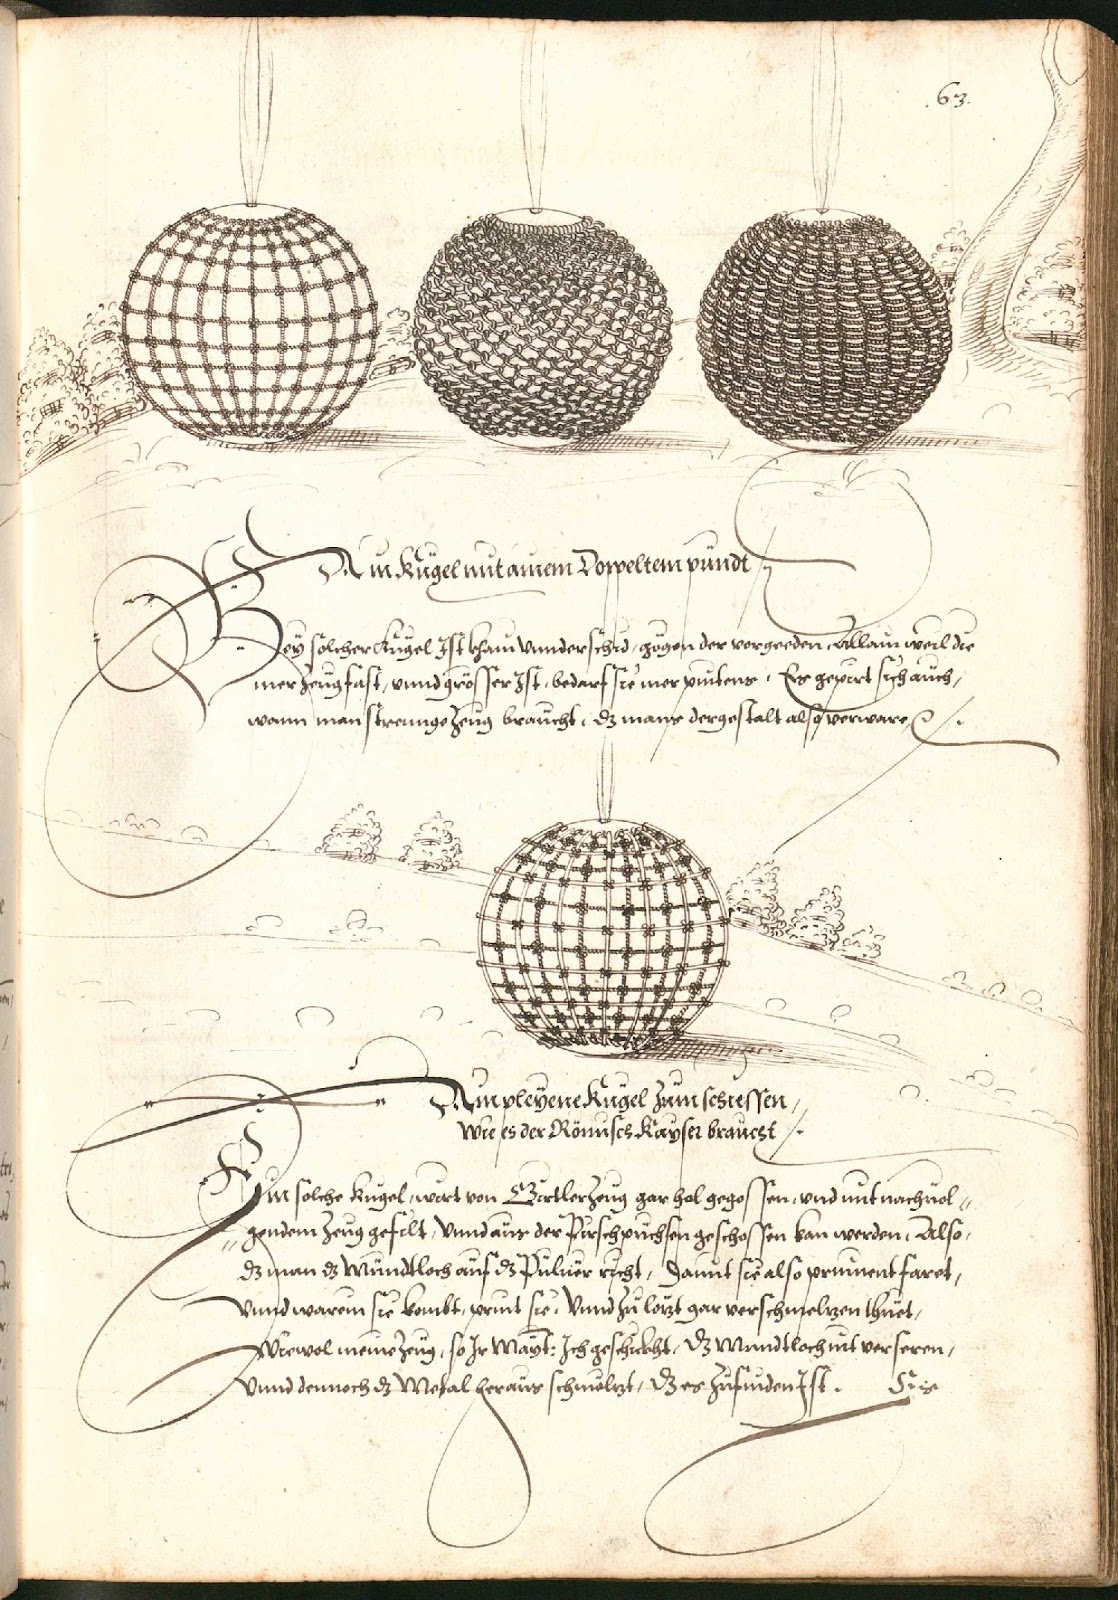 .63.
Ain Kugel mit ainem Doppeltem pundt /.
Bey solcher Kugel Ist khain vnnderschid, gögen der vorgeenden, Allain weil die
mer Zeug fast, vnnd grösser Ist, bedarf sie mer puntens. Es gepürt sich auch,
wann man strennge Zeug braucht, dz mans dergestalt also verware /.
Ain pleyene Kugel Zum schiessen /
wie es der Römisch Kayser braucht /.
Ain solche kugel, wirt von Gürtlerzeug gar hol gegossen, vnd mit nachuol„
„gendem Zeug gefilt, Vnnd aus der Pirschpüchsen geschossen kan werden, Also,
dz man dz Mundtloch auf dz Puluer richt, Damit sie also prinnent faret,
Vnnd warein sie kombt, print sie, Vnnd zu lötzt gar verschmeltzen thuet,
Wiewol meine Zeug, so Ir Mayt: Ich geschickht, dz Mundtloch nit verseren,
Vnnd dennoch dz Metal heraus schmöltzt, dz es zufinden Ist.